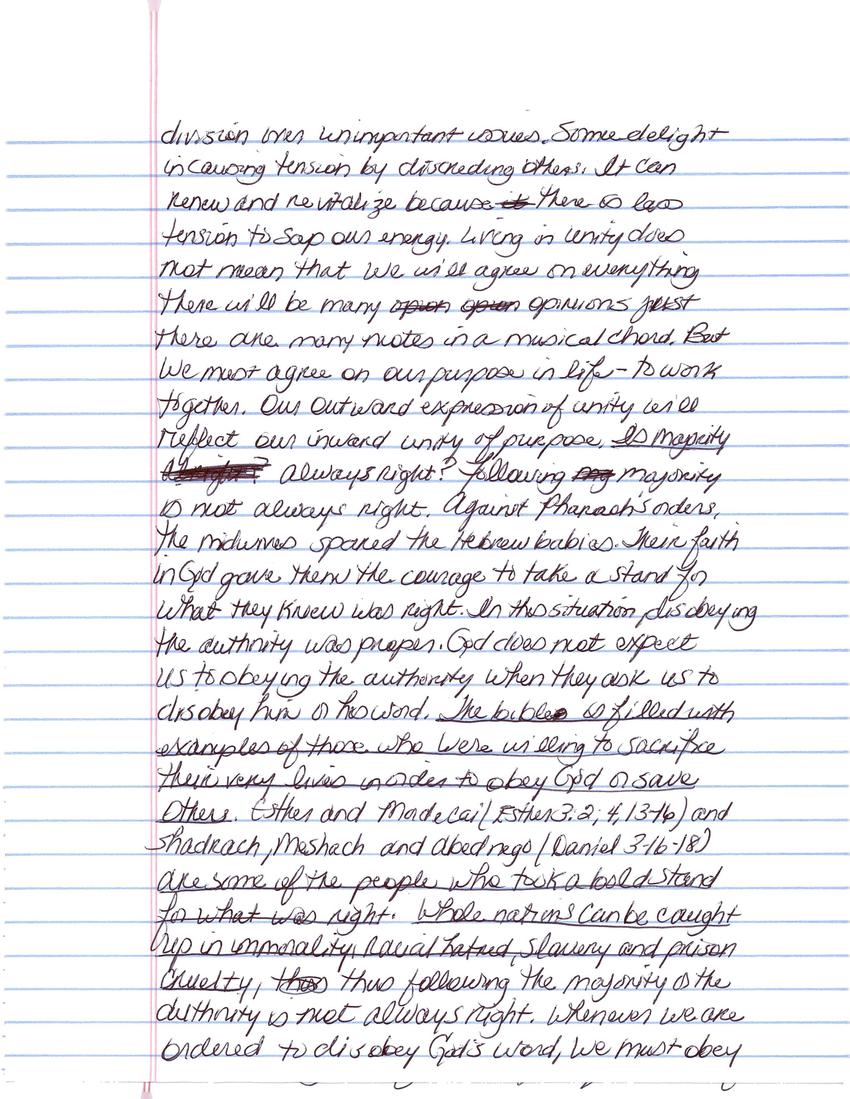 division over unimportant issues. Some delight
in causing tension by discreding others. It can
renew and revitalize because it there is less
tension to sap our energy. Living in unity does
not mean that we will agree on everything
there will be many opinions just
there are many notes in a musical chord. But
we must agree on our purpose in life - to work
together. Our outward expression of unity will
reflect our inward unity of purpose. Is majority
always right? Following majority
is not always right. Against Pharaoh's orders,
the midwives spared the Hebrew babies. Their faith
in God gave them the courage to take a stand for
what they knew was right. In this situation disobeying
the authority was proper. God does not expect
us to obeying the authority when they ask us to
disobey him or his word. The bible is filled with
examples of those who were willing to sacrifice
their very lives in order to obey God or save
others. Esther and Mordecai (Esther 3:2; 4,13-16) and
Shadrach, Meshach and abednego (Daniel 3-16-18)
are some of the people who took a bold stand
for what was right. Whole nations can be caught
up in immorality, racial hatred, slavery and prison
cruelty, thus following the majority or the
authority is not always right. Whenever we are
ordered to disobey God's word, we must obey